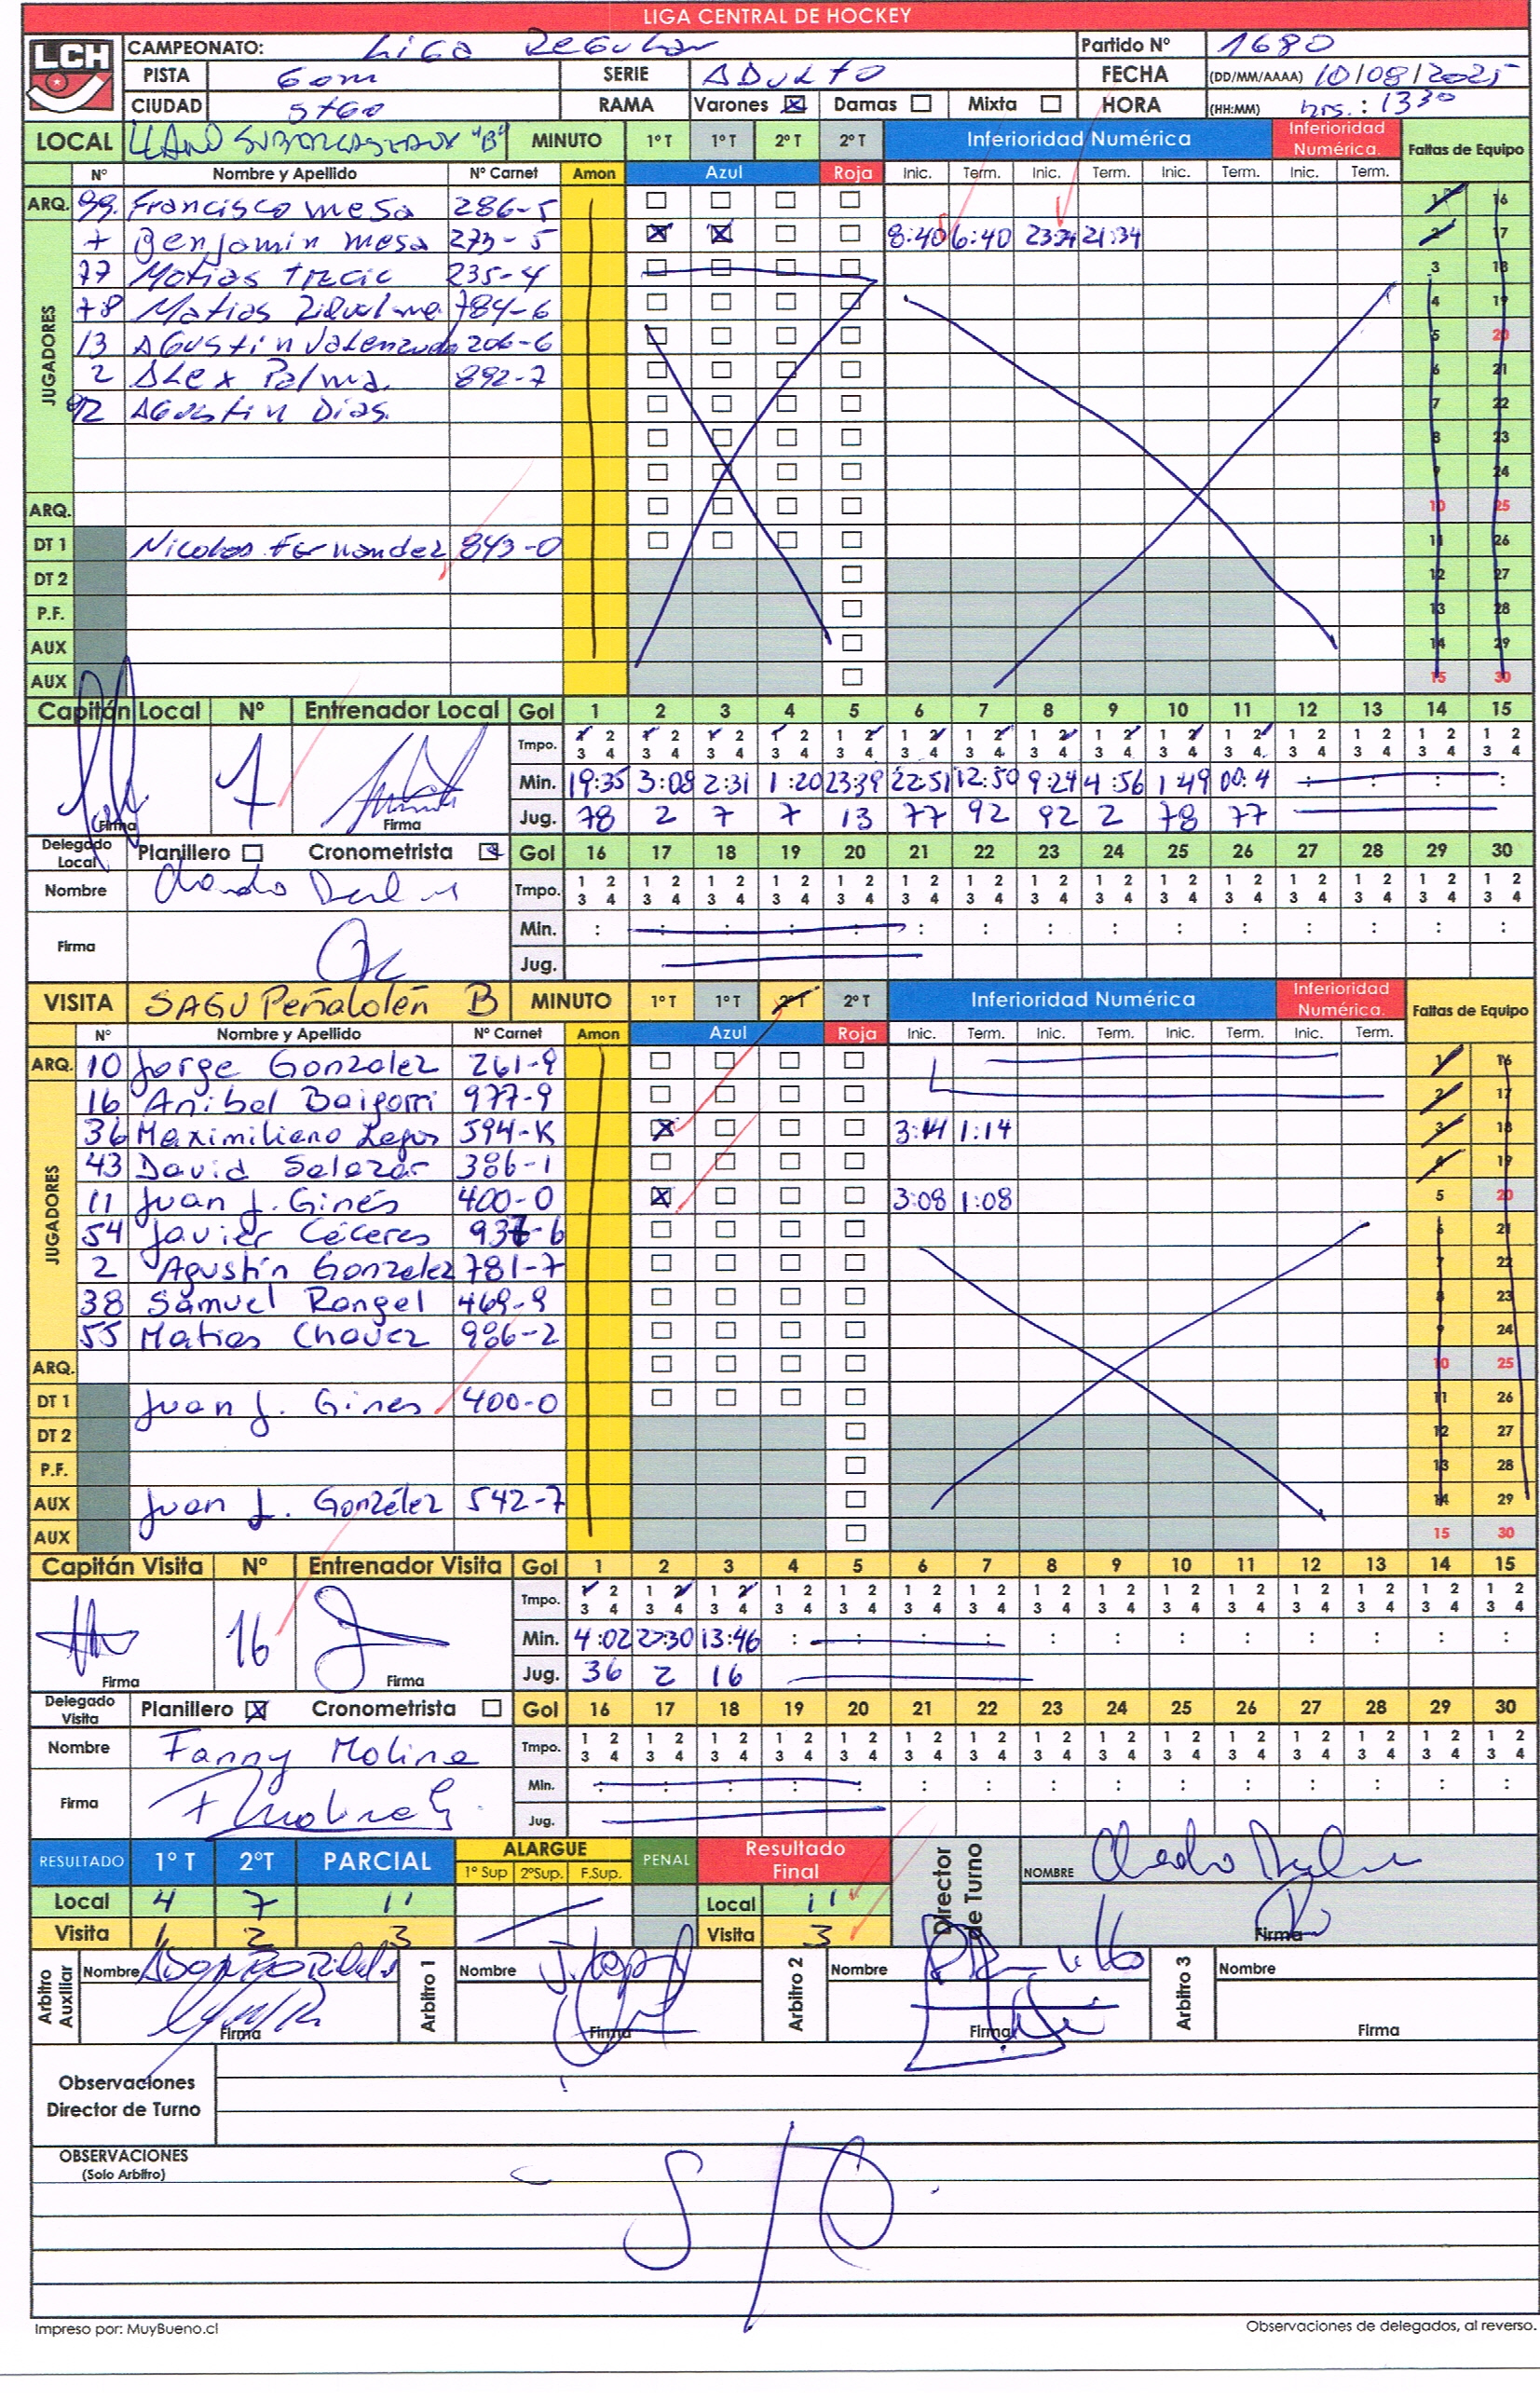 LIGA CENTRAL DE HOCKEY
LCH
CAMPEONATO: Liga Regular Partido Nº 1680
PISTA Gom SERIE ADULTO FECHA (DD/MM/AAAA) 10/08/2025
CIUDAD STGO RAMA Varones ☒ Damas ☐ Mixta ☐ HORA (HH:MM) hrs.: 1330
LOCAL "B" MINUTO 1º T 1º T 2º T 2º T Inferioridad Numérica Inferioridad Numérica. Faltas de Equipo
Nº Nombre y Apellido Nº Carnet Amon Azul Roja Inic. Term. Inic. Term. Inic. Term. Inic. Term.
ARQ. 99. Francisco mesa 286-5 1 16
JUGADORES
7 Benjamin mesa 273-5 ☒ ☒ 8:40 6:40 23:34 21:34 2 17
77 Matias 235-4 3 18
78 Matias 784-6 4 19
13 AGUSTIN Valenzuela 206-6 5 20
2 ALEX Palma. 892-7 6 21
92 AGUSTIN Dias. 7 22
8 23
9 24
ARQ. 10 25
DT 1 Nicolas Fernandez 843-0 11 26
DT 2 12 27
P.F. 13 28
AUX 14 29
AUX 15 30
Capitán Local Nº Entrenador Local Gol 1 2 3 4 5 6 7 8 9 10 11 12 13 14 15
Tmpo. 1 2 3 4 1 2 3 4 1 2 3 4 1 2 3 4 1 2 3 4 1 2 3 4 1 2 3 4 1 2 3 4 1 2 3 4 1 2 3 4 1 2 3 4 1 2 3 4 1 2 3 4 1 2 3 4 1 2 3 4
7 Min. 19:35 3:08 2:31 1:20 23:39 22:51 12:50 9:24 4:56 1:49 00:4
Firma Firma Jug. 78 2 7 7 13 77 92 92 2 78 77
Delegado Local Planillero ☐ Cronometrista ☒ Gol 16 17 18 19 20 21 22 23 24 25 26 27 28 29 30
Nombre Tmpo. 1 2 3 4 1 2 3 4 1 2 3 4 1 2 3 4 1 2 3 4 1 2 3 4 1 2 3 4 1 2 3 4 1 2 3 4 1 2 3 4 1 2 3 4 1 2 3 4 1 2 3 4 1 2 3 4 1 2 3 4
Firma Min.
Jug.
VISITA SAGU Peñalolén B MINUTO 1º T 1º T 2º T 2º T Inferioridad Numérica Inferioridad Numérica. Faltas de Equipo
Nº Nombre y Apellido Nº Carnet Amon Azul Roja Inic. Term. Inic. Term. Inic. Term. Inic. Term.
ARQ. 10 Jorge Gonzalez 261-9 1 16
JUGADORES
16 Anibal Baigorri 977-9 2 17
36 Maximiliano Lagos 594-K ☒ 3:14 1:14 3 18
43 David Salazar 386-1 4 19
11 Juan J. Ginés 400-0 ☒ 3:08 1:08 5 20
54 Javier Cáceres 6 21
2 Agustín Gonzalez 781-7 7 22
38 Samuel Rangel 469-9 8 23
55 Matias Chavez 986-2 9 24
ARQ. 10 25
DT 1 Juan J. Gines 400-0 11 26
DT 2 12 27
P.F. 13 28
AUX Juan J. González 542-7 14 29
AUX 15 30
Capitán Visita Nº Entrenador Visita Gol 1 2 3 4 5 6 7 8 9 10 11 12 13 14 15
Tmpo. 1 2 3 4 1 2 3 4 1 2 3 4 1 2 3 4 1 2 3 4 1 2 3 4 1 2 3 4 1 2 3 4 1 2 3 4 1 2 3 4 1 2 3 4 1 2 3 4 1 2 3 4 1 2 3 4 1 2 3 4
16 Min. 4:02 13:46
Firma Firma Jug. 36 2 16
Delegado Visita Planillero ☒ Cronometrista ☐ Gol 16 17 18 19 20 21 22 23 24 25 26 27 28 29 30
Nombre Fanny Molina Tmpo. 1 2 3 4 1 2 3 4 1 2 3 4 1 2 3 4 1 2 3 4 1 2 3 4 1 2 3 4 1 2 3 4 1 2 3 4 1 2 3 4 1 2 3 4 1 2 3 4 1 2 3 4 1 2 3 4 1 2 3 4
Firma Min.
Jug.
RESULTADO 1º T 2ºT PARCIAL ALARGUE 1º Sup 2ºSup. F.Sup. PENAL Resultado Final Director de Turno NOMBRE
Local 4 7 11 Local 11
Visita 1 2 3 Visita 3 Firma
Arbitro Auxiliar Nombre Arbitro 1 Nombre Arbitro 2 Nombre Arbitro 3 Nombre
Firma Firma Firma Firma
Observaciones
Director de Turno
OBSERVACIONES
(Solo Arbitro)
S/O
Impreso por: MuyBueno.cl Observaciones de delegados, al reverso.